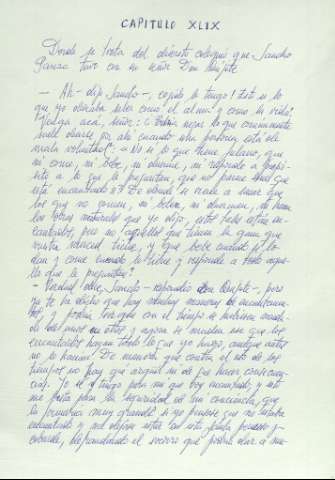 CAPITULO XLIX
Donde se trata del discreto coloquio que Sancho
Panza tuvo con su señor Don Quijote
— ¡Ah — dijo Sancho —, cogido le tengo! Esto es lo
que yo deseaba saber como el alma y como la vida.
Venga acá, señor: ¿ negar lo que comunmente
suele decirse por ahí cuando una persona está de
mala voluntad: "No sé lo que tiene fulano, que
ni come, ni bebe, ni duerme, ni responde a propósi-
to a lo que le preguntan, que no parece sino que
está encantado"? De donde se viene a sacar que
los que no comen, ni beben, ni duermen, ni hacen
las obras naturales que yo digo, estos tales están en-
cantados, pero no aquellos que tienen la gana que
vuestra merced tiene, y que bebe cuando se lo
dan y come cuando lo tiene y responde a todo aque-
llo que le preguntan?
— Verdad dices, Sancho — respondió Don Quijote —, pero
ya te he dicho que hay muchas maneras de encantamen-
tos, y podría ser que con el tiempo se hubiesen muda-
do de unos en otros y agora se use que los
encantados hagan todo lo que yo hago, aunque antes
no lo hacían. De manera que contra el uso de los
tiempos no hay que argüir ni de qué hacer consecuen-
cias. Yo sé y tengo para mí que voy encantado, y esto
me basta para la seguridad de mi conciencia, que
la formaría muy grande si yo pensase que no estaba
encantado y me dejase estar en esta jaula perezoso y
cobarde, defraudando el socorro que podría dar a mu-